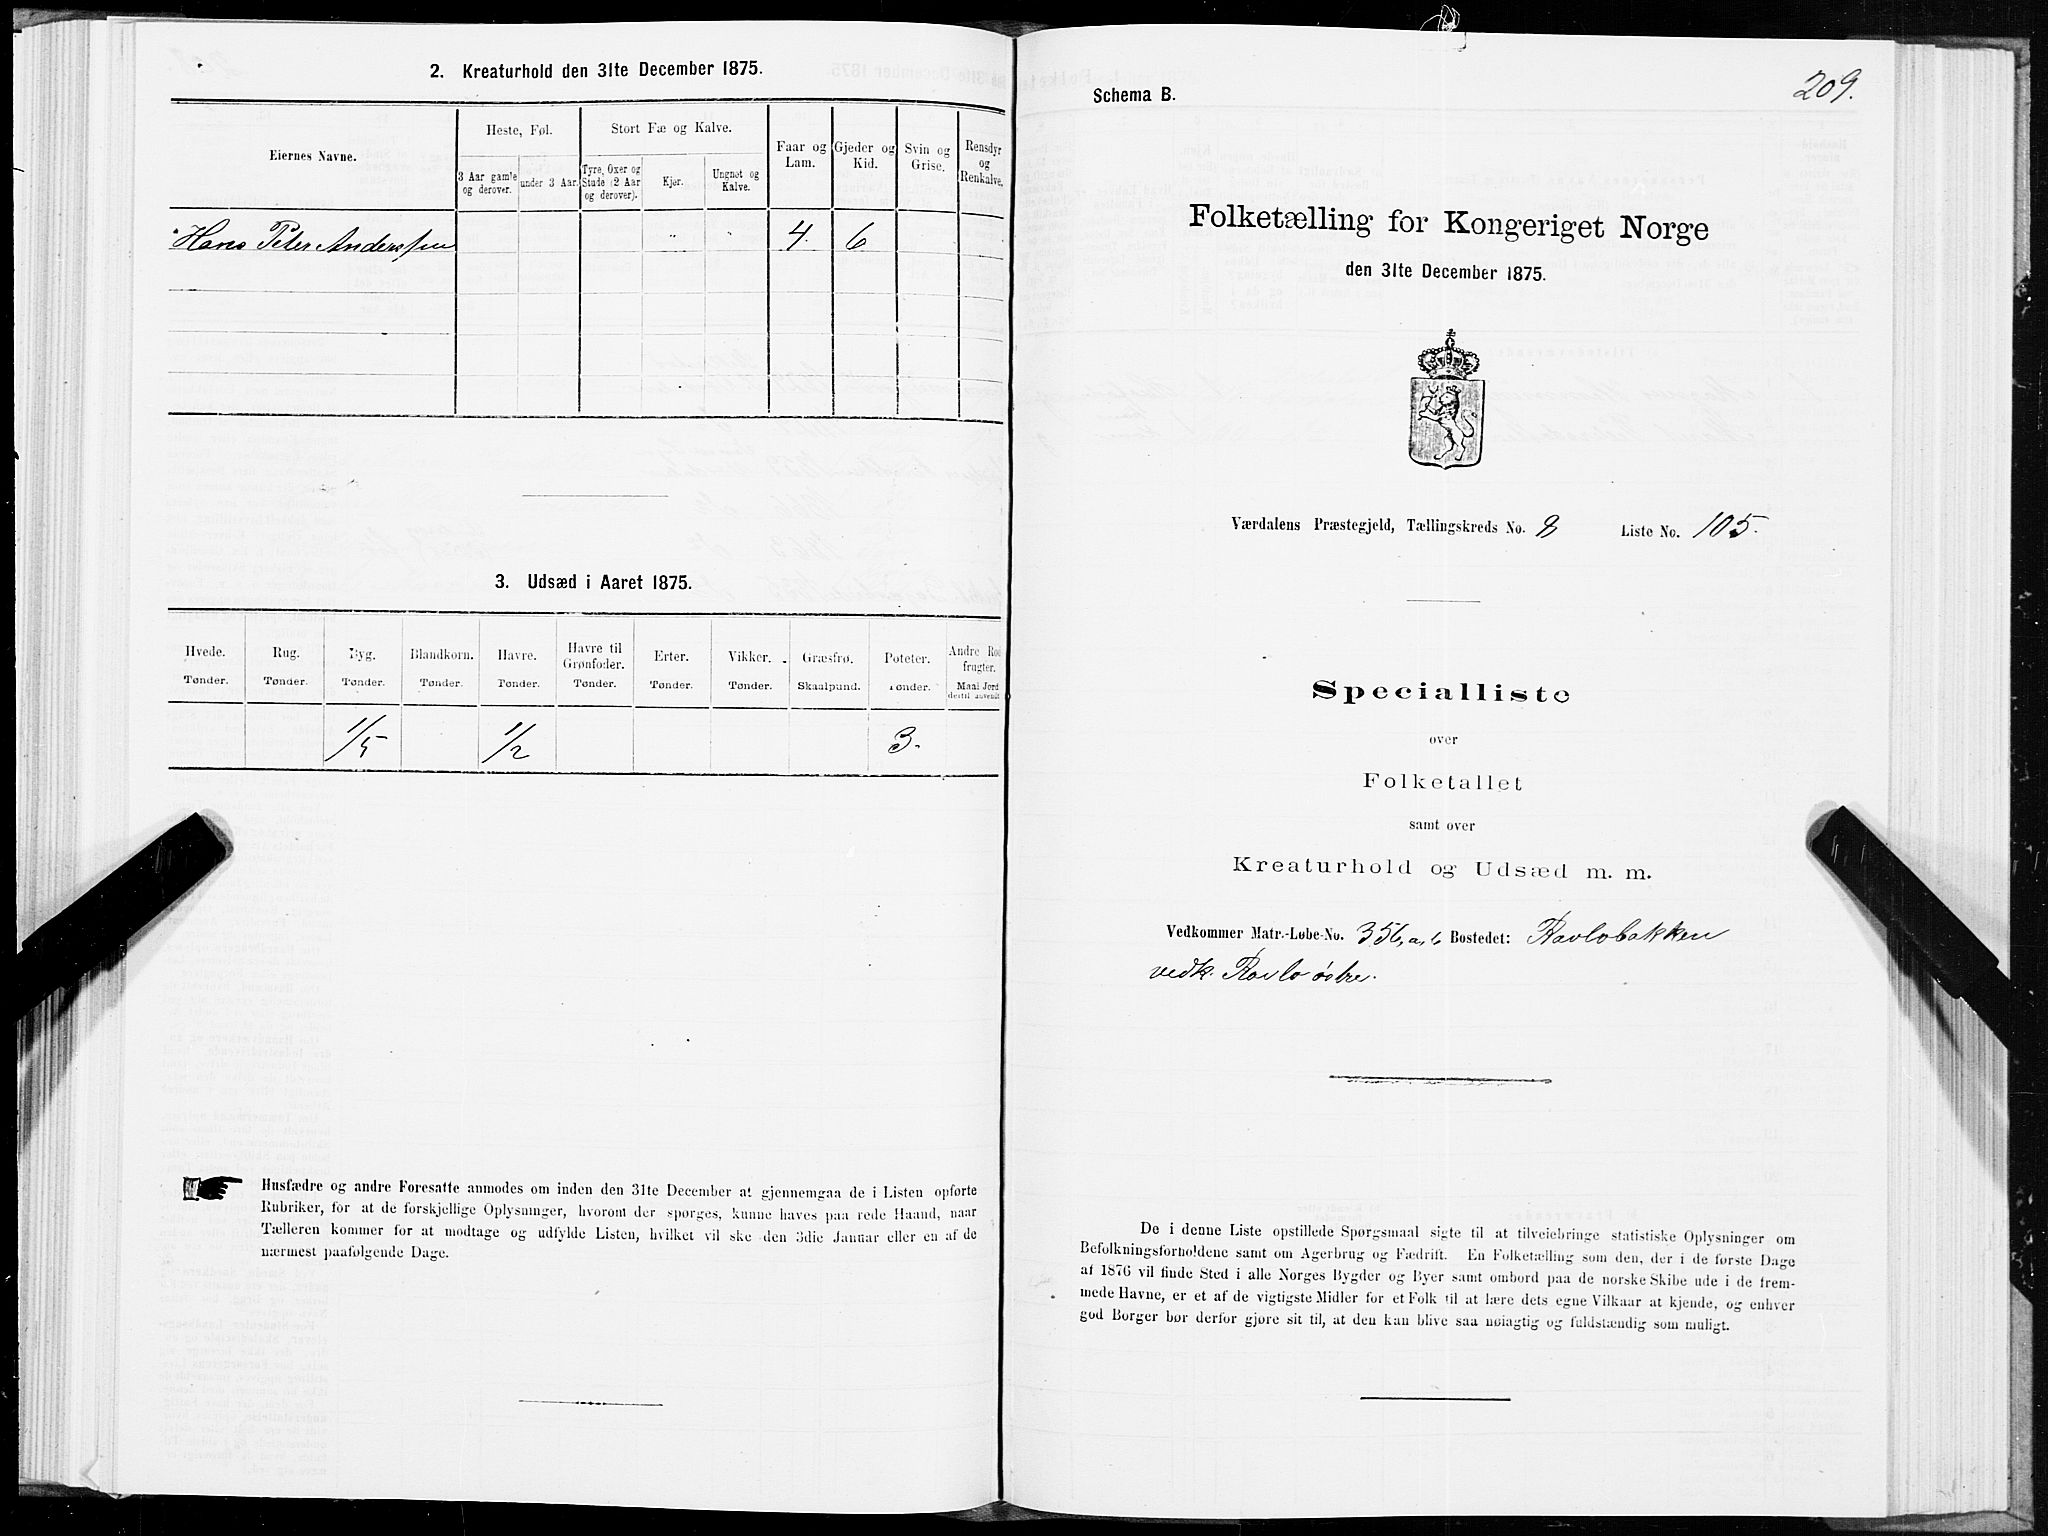 2. Kreaturhold den 31te December 1875.
Eiernes Navne.
Heste, Føl.
Stort Fæ og Kalve.
Faar og Lam.
Gjeder og Kid.
Svin og Grise.
Rensdyr og Renkalve.
3 Aar gamle og derover.
under 3 Aar.
Tyre, Oxer og Stude (2 Aar og derover).
Kjør.
Ungnøt og Kalve.
Hans Peter Anderssen " " 4. 6
3. Udsæd i Aaret 1875.
Hvede. Rug. Byg. Blandkorn. Havre. Havre til Grønfoder. Erter. Vikker. Græsfrø. Poteter. Andre Rodfrugter.
Tønder. Tønder. Tønder. Tønder. Tønder. Tønder. Tønder. Tønder. Skaalpund. Tønder. Maal Jord dertil anvendt
1/5 1/2 3.
Husfædre og andre Foresatte anmodes om inden den 31te December at gjennemgaa de i Listen opførte
Rubriker, for at de forskjellige Oplysninger, hvorom der spørges, kunne haves paa rede Haand, naar
Tælleren kommer for at modtage og udfylde Listen, hvilket vil ske den 3die Januar eller en af de
nærmest paafølgende Dage.
209.
Schema B.
Folketælling for Kongeriget Norge
den 31te December 1875.
Værdalens Præstegjeld, Tællingskreds No. 8 Liste No. 105.
Specialliste
over
Folketallet
samt over
Kreaturhold og Udsæd m. m.
Vedkommer Matr.-Løbe-No. 356, a, b Bostedet: Ravlobakken
vedk. Ravlo østre.
De i denne Liste opstillede Spørgsmaal sigte til at tilveiebringe statistiske Oplysninger om
Befolkningsforholdene samt om Agerbrug og Fædrift. En Folketælling som den, der i de første Dage
af 1876 vil finde Sted i alle Norges Bygder og Byer samt ombord paa de norske Skibe ude i de frem-
mede Havne, er et af de vigtigste Midler for et Folk til at lære dets egne Vilkaar at kjende, og enhver
god Borger bør derfor gjøre sit til, at den kan blive saa nøiagtig og fuldstændig som muligt.